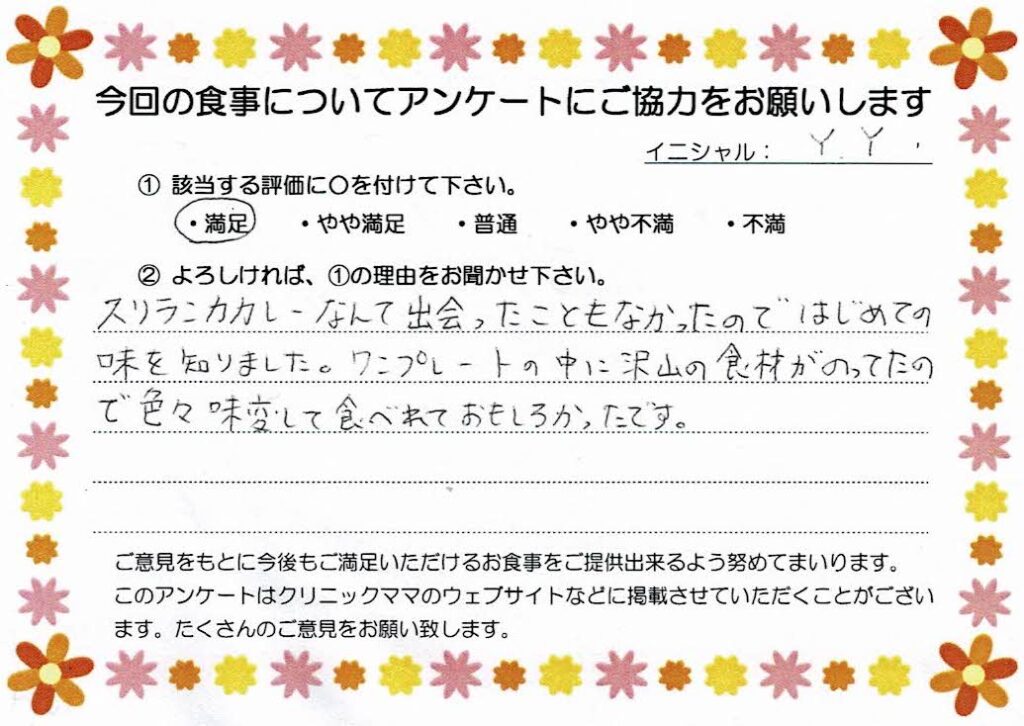 今回の食事についてアンケートにご協力をお願いします
イニシャル： Y.Y.
① 該当する評価に〇を付けて下さい。
・満足 ・やや満足 ・普通 ・やや不満 ・不満
② よろしければ、①の理由をお聞かせ下さい。
スリランカカレーなんて出会ったこともなかったのではじめての
味を知りました。ワンプレートの中に沢山の食材がのってたの
で色々味変して食べれておもしろかったです。
ご意見をもとに今後もご満足いただけるお食事をご提供出来るよう努めてまいります。
このアンケートはクリニックママのウェブサイトなどに掲載させていただくことがござい
ます。たくさんのご意見をお願い致します。